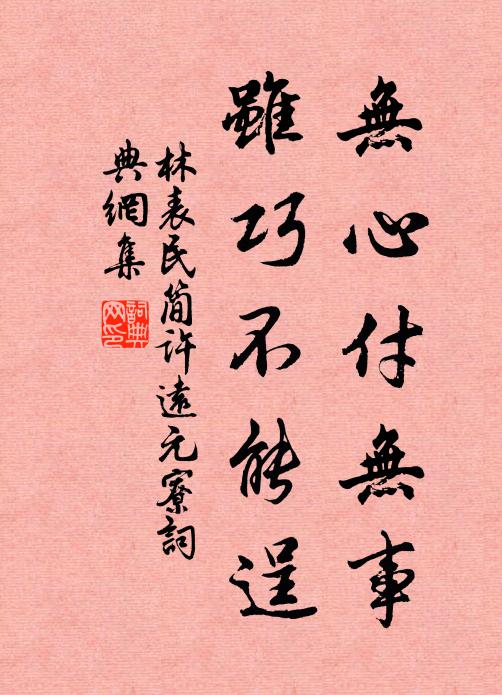 無心付無事
雖巧不能逞
林表民簡許遠元寮詞
典網集
詞典
网印